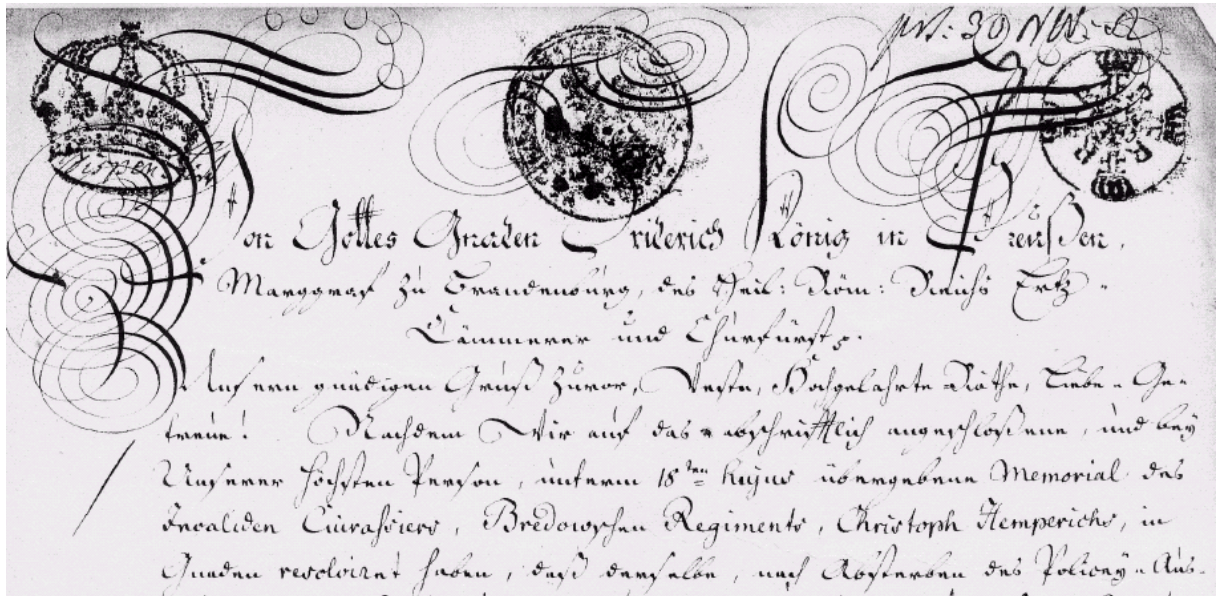 30
Von Gottes Gnaden Friderich König in Preußen,
Marggraf zu Brandenburg, des Heil: Röm: Reichs Ertz-
Cämmerer und Churfürst
Unsern gnädigen Gruß zuvor, Veste, Hochgelahrte Räthe, Liebe Ge-
treue! Nachdem Wir auf das abschrifftlich angeschloßene, und bey
Unserer höchsten Person, unterm 18ten hujus übergebene Memorial des
Invaliden Cuirassiers, Bredowschen Regiments, Christoph Hemperichs, in
Gnaden resolviret haben, daß derselbe, nach Absterben des Policey-Aus-